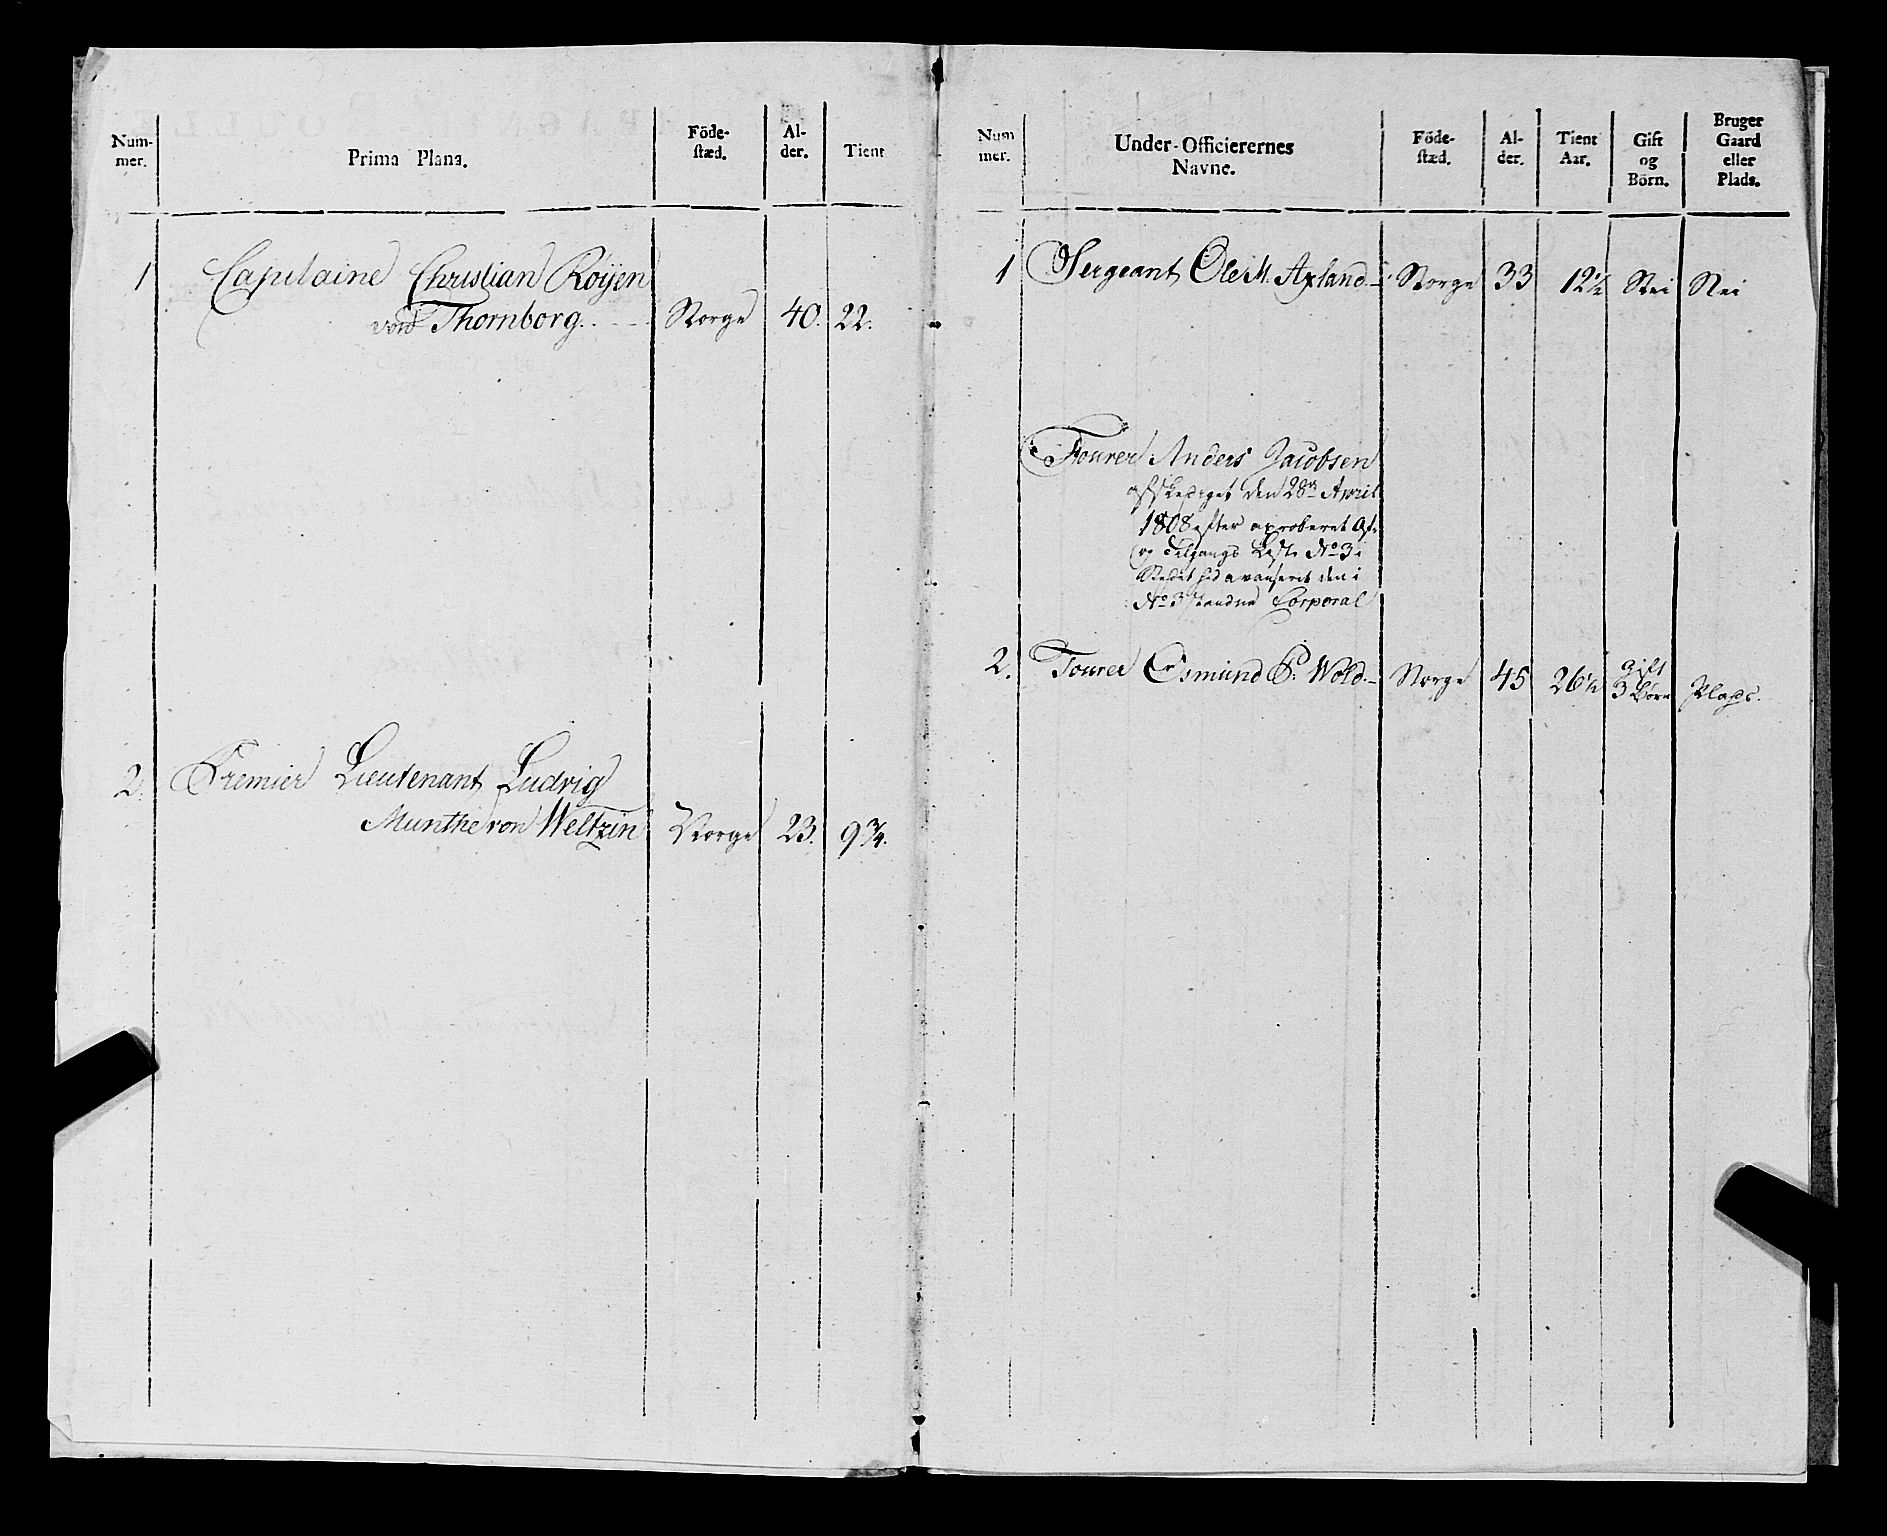 Num-
mer.
Prima Plana.
Föde-
stæd.
Al-
der.
Tient
1 Capitaine Christian Röÿen
von Thornborg. Norge 40. 22.
2. Premier Lieutenant Ludvig
Munthe von Weltzin Norge 23. 9 3/4.
Num
mer.
Under-Officierernes
Navne.
Föde-
stæd.
Al-
der.
Tient
Aar.
Gift
og
Börn.
Bruger
Gaard
eller
Plads.
1 Sergeant Ole M. Axland Norge 33 12 1/2 Nei Nei
Fourer Anders Jacobsen
afskediget den 28de April
1808 efter aproberet Af-
og Tilgangs Liste No 3 i
Stedet avanseret den i
No 3 Corporal
2. Fourer Osmund P. Wold. Norge 45 26 1/2 gift
3 Børn Plads.